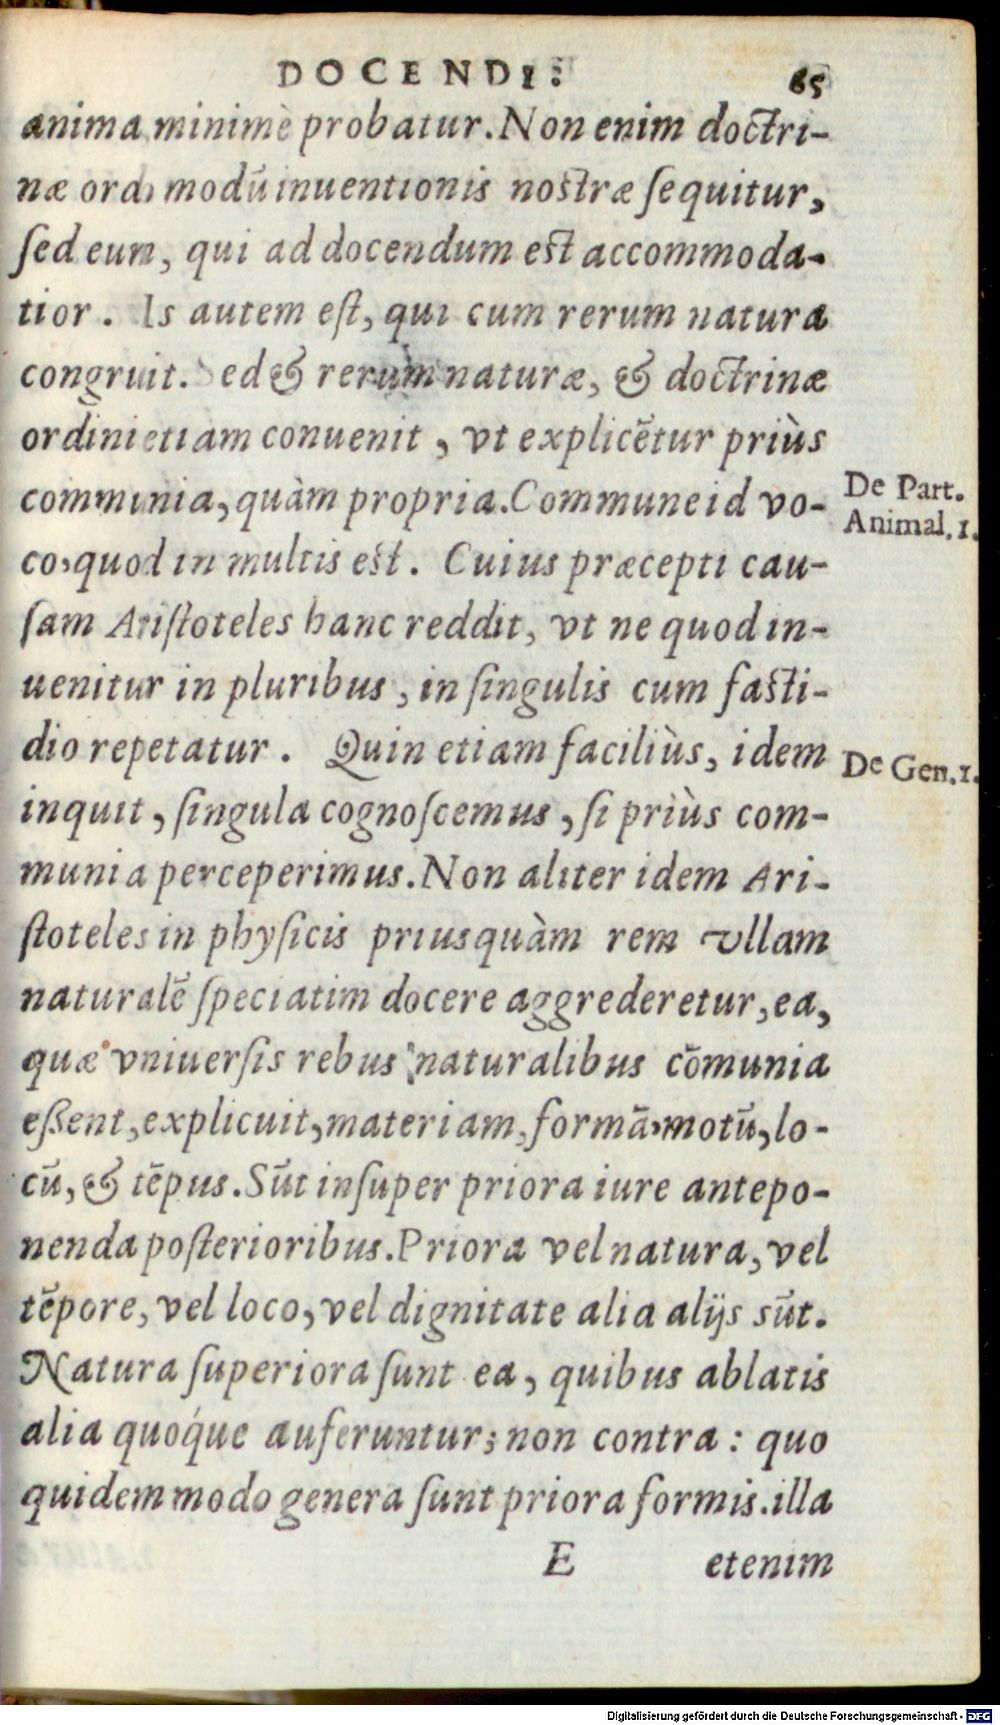 DOCENDI. 65
anima minimè probatur. Non enim doctri-
næ ordo modū inuentionis nostræ ſequitur,
ſed eum, qui ad docendum est accommoda-
tior. Is autem eſt, qui cum rerum natura
congruit. Sed & rerum naturæ, & doctrinæ
ordini etiam conuenit, vt explicētur priùs
communia, quàm propria. Commune id vo-
De Part.
Animal. 1.
co, quod in multis est. Cuius præcepti cau-
ſam Ariſtoteles hanc reddit, vt ne quod in-
uenitur in pluribus, in ſingulis cum faſti-
dio repetatur. Quin etiam faciliùs, idem
De Gen. 1.
inquit, ſingula cognoſcemus, ſi priùs com-
munia perceperimus. Non aliter idem Ari-
ſtoteles in phyſicis priusquàm rem vllam
naturalē ſpeciatim docere aggrederetur, ea,
quæ vniuerſis rebus naturalibus cōmunia
eßent, explicuit, materiam, formā, motū, lo-
cū, & tēpus. Sūt inſuper priora iure antepo-
nenda poſterioribus. Priora vel natura, vel
tēpore, vel loco, vel dignitate alia alijs sūt.
Natura ſuperiora ſunt ea, quibus ablatis
alia quoq́ue auferuntur; non contra: quo
quidem modo genera ſunt priora formis. illa
E etenim
Digitalisierung gefördert durch die Deutsche Forschungsgemeinschaft - DFG